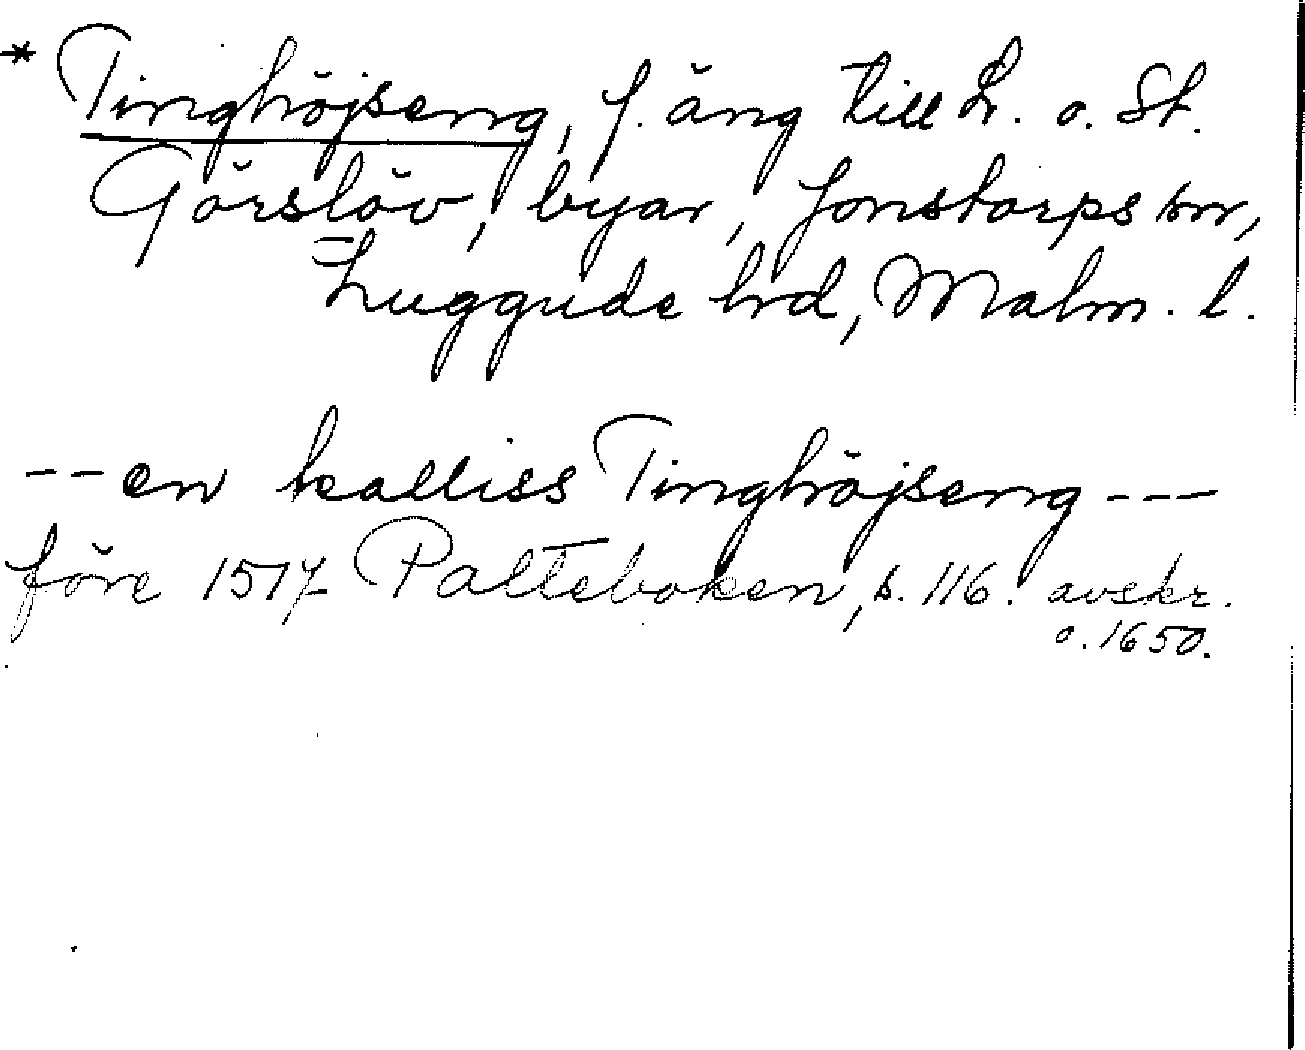 * Tinghöjseng, f. äng till L. o. St.
Görslöv, byar, Jonstorps sn,
Luggude hd, Malm. l.
-- en kalliss Tinghöjseng ---
före 1517 Palteboken, s. 116. avskr.
o. 1650.